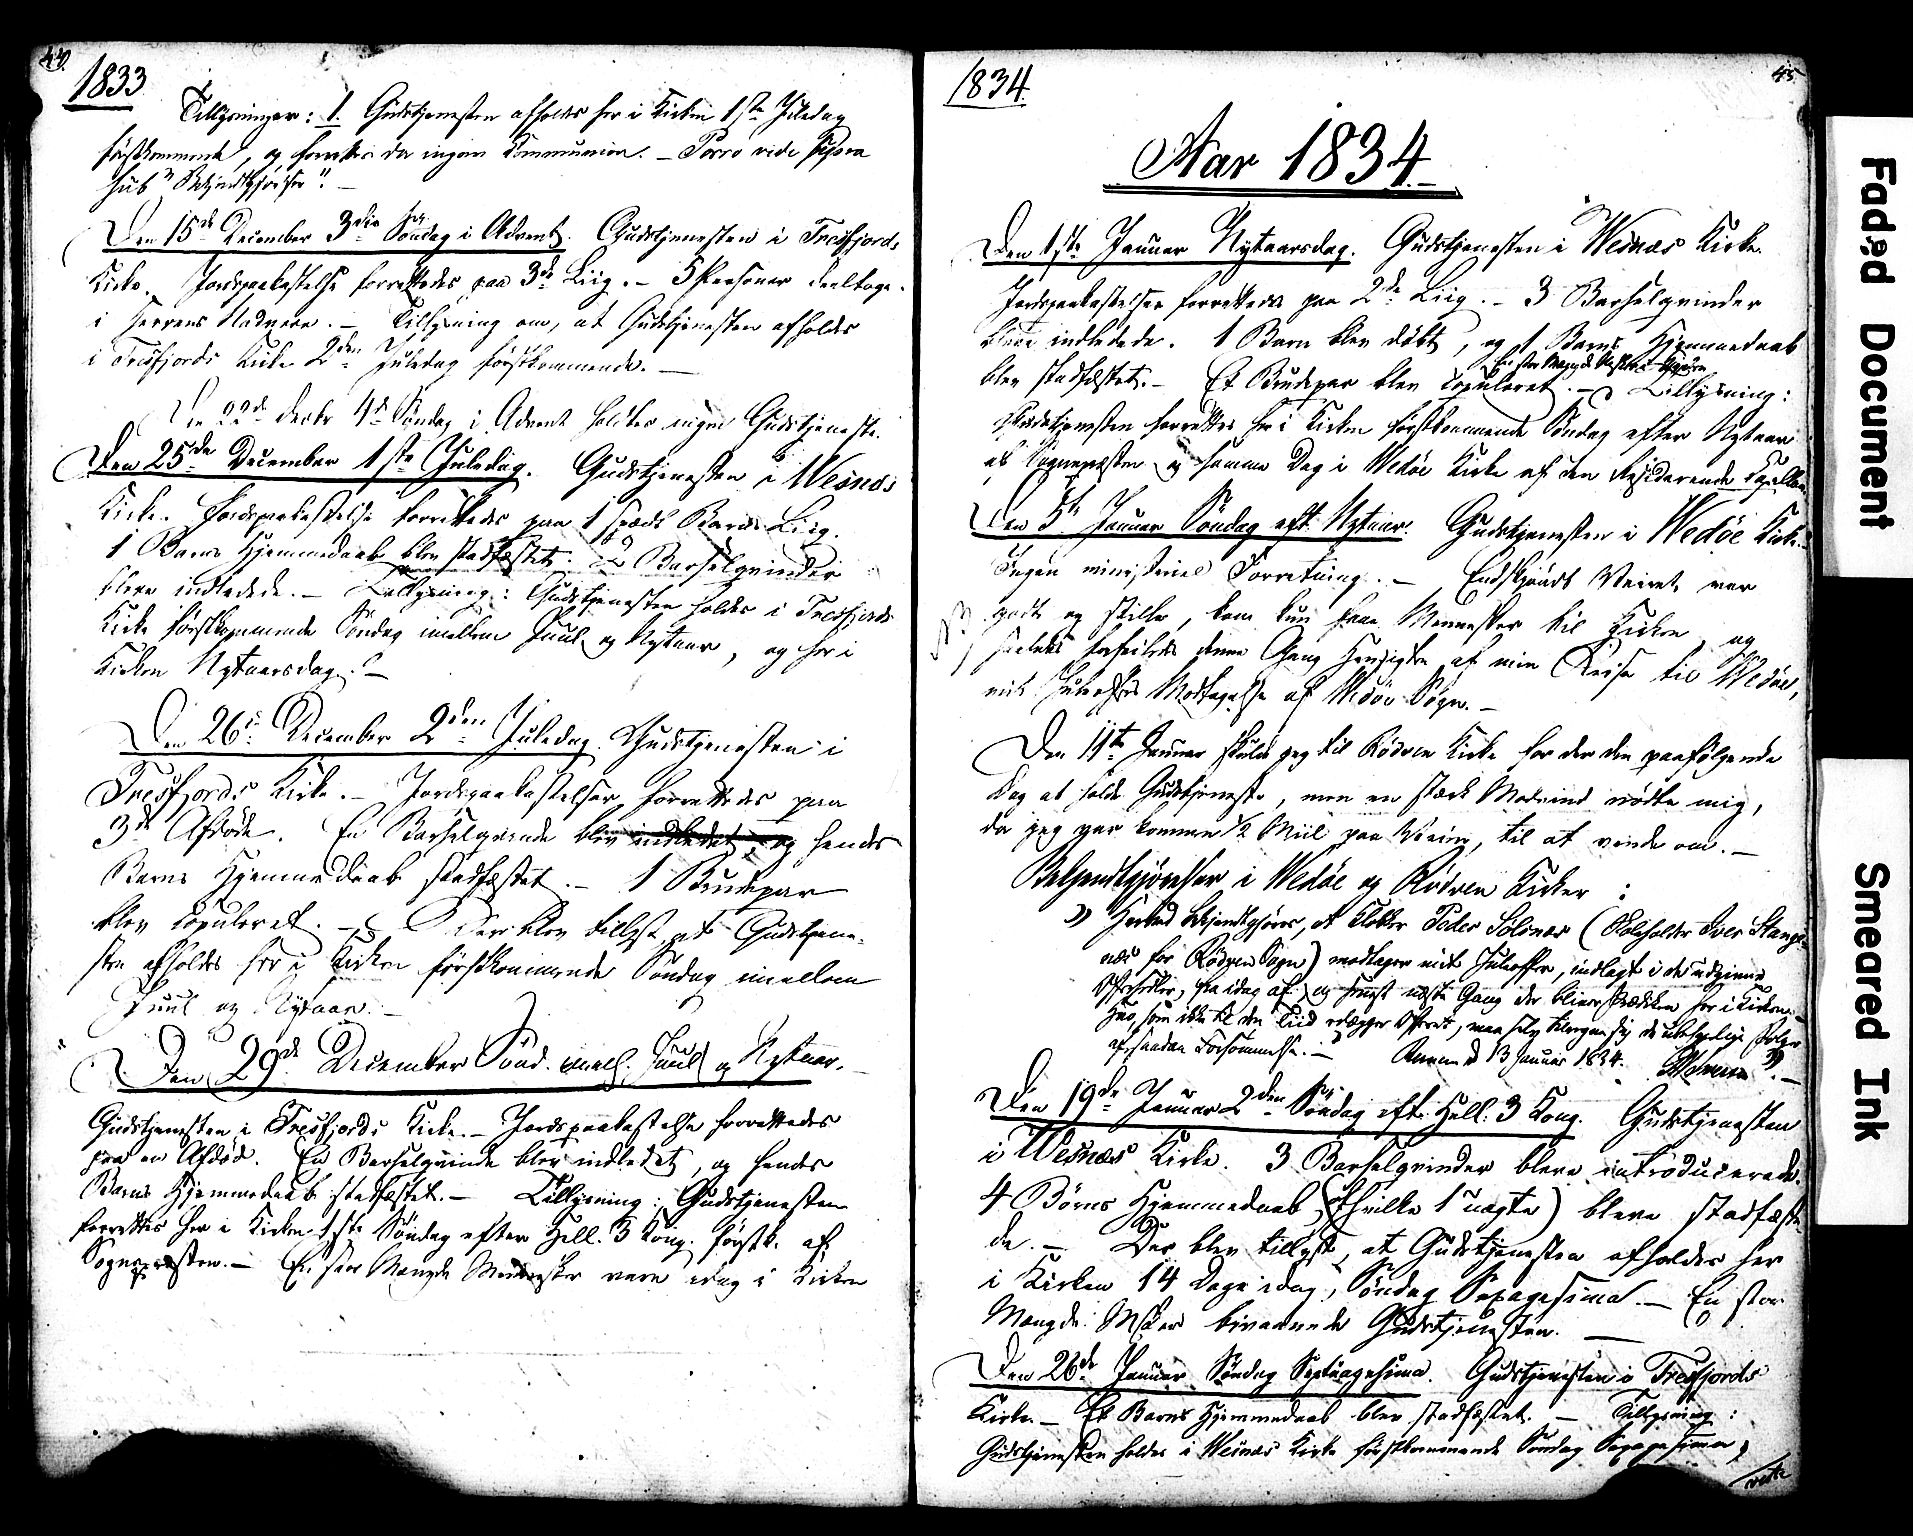 44.
1833
Tillysninger: 1. Gudstjenesten afholdes her i Kirken 1ste Juledag
førstkommende, og forrettes da ingen Communion. – Porro vide supra
sub "Bekjendtgjørelser". –
Den 15de December 3die Søndag i Advent. Gudstjenesten i Tresfjords
Kirke. Jordspaakastelse forrettedes paa 3de Liig. – 5 Personer deeltoge
i Herrens Nadvere. – Tillysning om, at Gudstjenesten afholdes
i Tresfjords Kirke 2den Juledag førstkommende. –
Den 22de Decbr 4de Søndag i Advent holdtes ingen Gudstjeneste.
Den 25de December 1ste Juledag. Gudstjenesten i Wesnæs
Kirke. Jordspaakastelse forrettedes paa 1 spædt Barns Liig.
1 Barns Hjemmedaab blev stadfæstet. 2 Barselqvinder
bleve indledede. – Tillysning: Gudstjenesten holdes i Tresfjords
Kirke førstkommende Søndag imellem Juul og Nytaar, og her i
Kirken Nytaarsdag. –
Den 26de December 2den Juledag. Gudstjenesten i
Tresfjords Kirke. – Jordspaakastelser forrettedes paa
3de Afdøde. En Barselqvinde blev indledet, og hendes
Barns Hjemmedaab stadfæstet. – 1 Brudepar
blev copuleret. – Der blev tillyst at Gudstjene-
sten afholdes her i Kirken førstkommende Søndag imellem
Juul og Nytaar. –
Den 29de December Sønd. mell. Juul og Nytaar.
Gudstjenesten i Tresfjords Kirke. – Jordspaakastelse forrettedes
paa en Afdød. En Barselqvinde blev indledet, og hendes
Barns Hjemmedaab stadfæstet. – Tillysning: Gudstjenesten
forrettes her i Kirken 1ste Søndag efter Hell. 3 Kong. førstk. af
Sognepræsten. – En stor Mængde Mennesker vare idag i Kirken
1834.
45
Aar 1834.
Den 1ste Januar Nytaarsdag. Gudstjenesten i Wesnæs Kirke.
Jordspaakastelser forrettedes paa 2de Liig. – 3 Barselqvinder
bleve indledede. 1 Barn blev døbt, og 1 Barns Hjemmedaab
En stor Mængde
blev stadfæstet. – Et Brudepar blev copuleret. – Tillysning:
Gudstjenesten forrettes her i Kirken førstkommende Søndag efter Nytaar
af Sognepræsten og samme Dag i Wedøe Kirke af den Residerende Capellan
Den 5te Januar Søndag eft. Nytaar. Gudstjenesten i Wedøe Kirke.
Ingen ministeriel Forretning. – Endskjøndt Veiret var
godt og stille, kom kun faae Mennesker til Kirken, og
saaledes forfeiledes denne Gang Hensigten af min Reise til Wedøe,
mit Juleoffers Modtagelse af Wedøe Sogn. –
Den 11te Januar skulde jeg til Rødven Kirke for der den paafølgende
Dag at holde Gudstjeneste, men en stærk Modvind nødte mig,
da jeg var kommen ½ Miil paa Veien, til at vende om. –
Bekjendtgjørelser i Wedøe og Rødven Kirker:
"Herved bekjendtgjøres, at Klokker Peder Solsnæs (Skoleholder Iver Stange-
næs for Rødven Sogn) modtager mit Juleoffer, indlagt i de udgivne
Offersedler, fra idag af og senest næste Gang der bliver Prædiken her i Kirken.
Hvo, som ikke til den Tiid erlægger Offeret, maa selv tilregne sig de ubehagelige Følger
af saadan Forsømmelse. – d 13 Januar 1834.
Den 19de Januar 2den Søndag eft. Hell. 3 Kong. Gudstjenesten
i Wesnæs Kirke. 3 Barselqvinder bleve introducerede.
4 Børns Hjemmedaab (hvilke 1 uægte) bleve stadfæste-
de. – Der blev tillyst, at Gudstjenesten afholdes her
i Kirken 14 Dage idag, Søndag Sexagesima. – En stor
Mængde Msker bivaanede Gudstjenesten. –
Den 26de Januar Søndag Septuagesima. Gudstjenesten i Tresfjords
Kirke. – Et Barns Hjemmedaab blev stadfæstet. – Tillysning:
Gudstjenesten holdes i Wesnæs Kirke førstkommende Søndag Sexagesima,
Faded Document
Smeared Ink